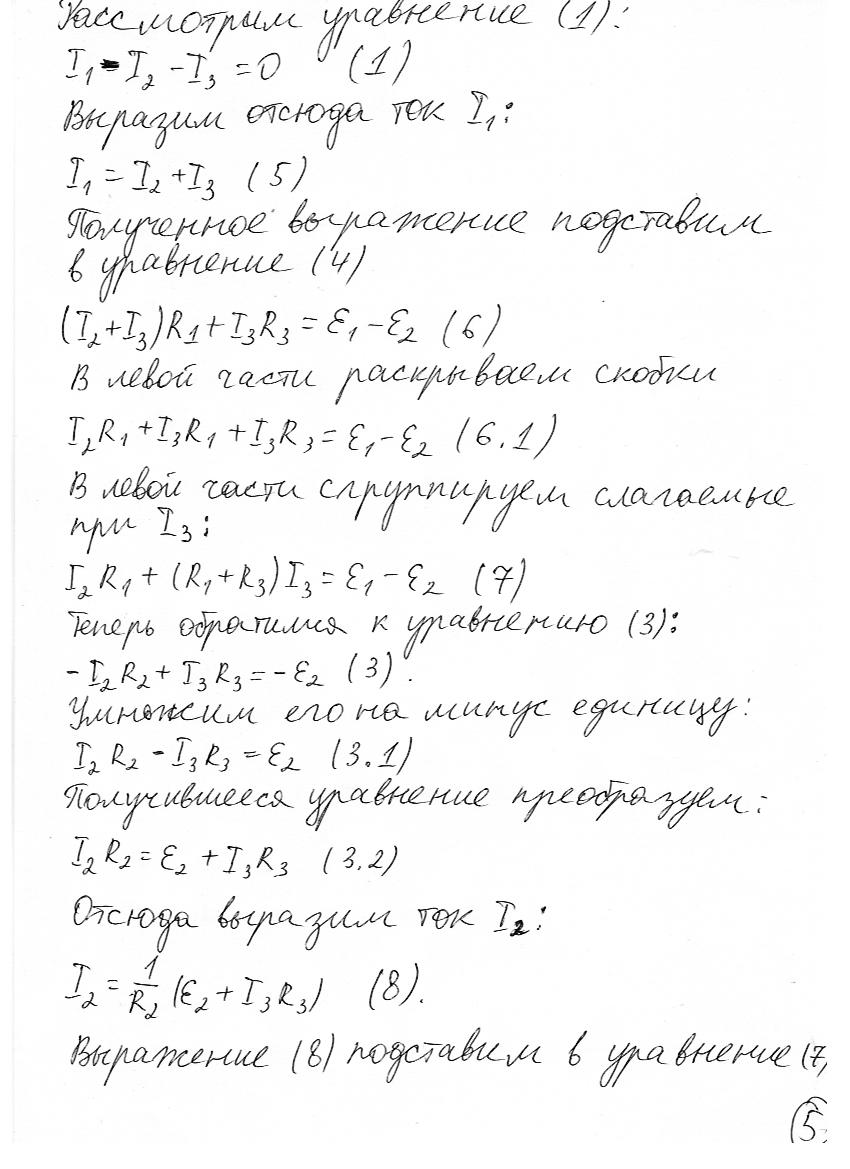 Рассмотрим уравнение (1):
I₁ - I₂ - I₃ = 0 (1)
Выразим отсюда ток I₁:
I₁ = I₂ + I₃ (5)
Полученное выражение подставим
в уравнение (4)
(I₂+I₃)R₁ + I₃R₃ = ℰ₁ - ℰ₂ (6)
В левой части раскрываем скобки
I₂R₁ + I₃R₁ + I₃R₃ = ℰ₁ - ℰ₂ (6.1)
В левой части сгруппируем слагаемые
при I₃:
I₂R₁ + (R₁+R₃)I₃ = ℰ₁ - ℰ₂ (7)
Теперь обратимся к уравнению (3):
-I₂R₂ + I₃R₃ = -ℰ₂ (3).
Умножим его на минус единицу:
I₂R₂ - I₃R₃ = ℰ₂ (3.1)
Получившееся уравнение преобразуем:
I₂R₂ = ℰ₂ + I₃R₃ (3.2)
Отсюда выразим ток I₂:
I₂ = 1/R₂ (ℰ₂ + I₃R₃) (8).
Выражение (8) подставим в уравнение (7)
(5